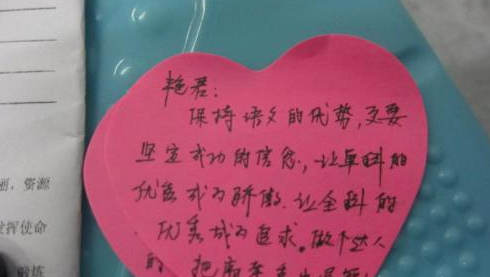 艳君：
保持语文的优势，更要
坚定成功的信念，让单科的
优秀成为骄傲，让全科的
优秀成为追求。做个达人
的
丽，资源
发挥使命
锻炼